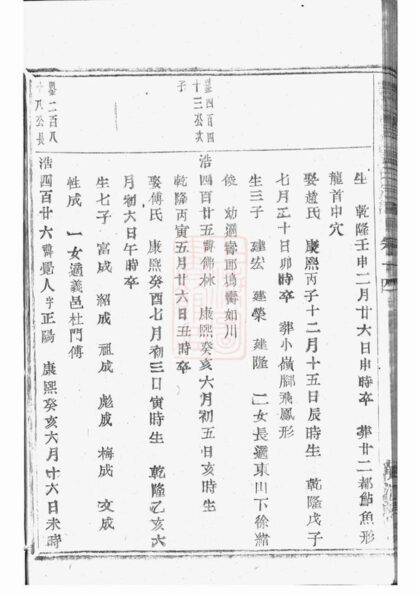 生 乾隆壬申二月廿六日申時卒 葬廿二都鮎魚形
龍首申穴
娶趙氏 康熙丙子十二月十五日辰時生 乾隆戊子
七月三十日卯時卒 葬小嶺腳飛鳳形
生三子 建宏 建榮 建隆 二女長適東山下徐
俊 幼適壽
浩四百廿五諱佛林 康熙癸亥六月初五日亥時生
乾隆丙寅五月廿六日丑時卒
娶傅氏 康熙癸酉七月初三日寅時生 乾隆乙亥六
月初六日午時卒
生七子 富成 紹成 祖成 彪成 梅成 文成
性成 一女適義邑杜門傅
浩四百廿六諱覺人字正陽 康熙癸亥六月十六日未時
四百四
十三公次
子
二百八
十八公長